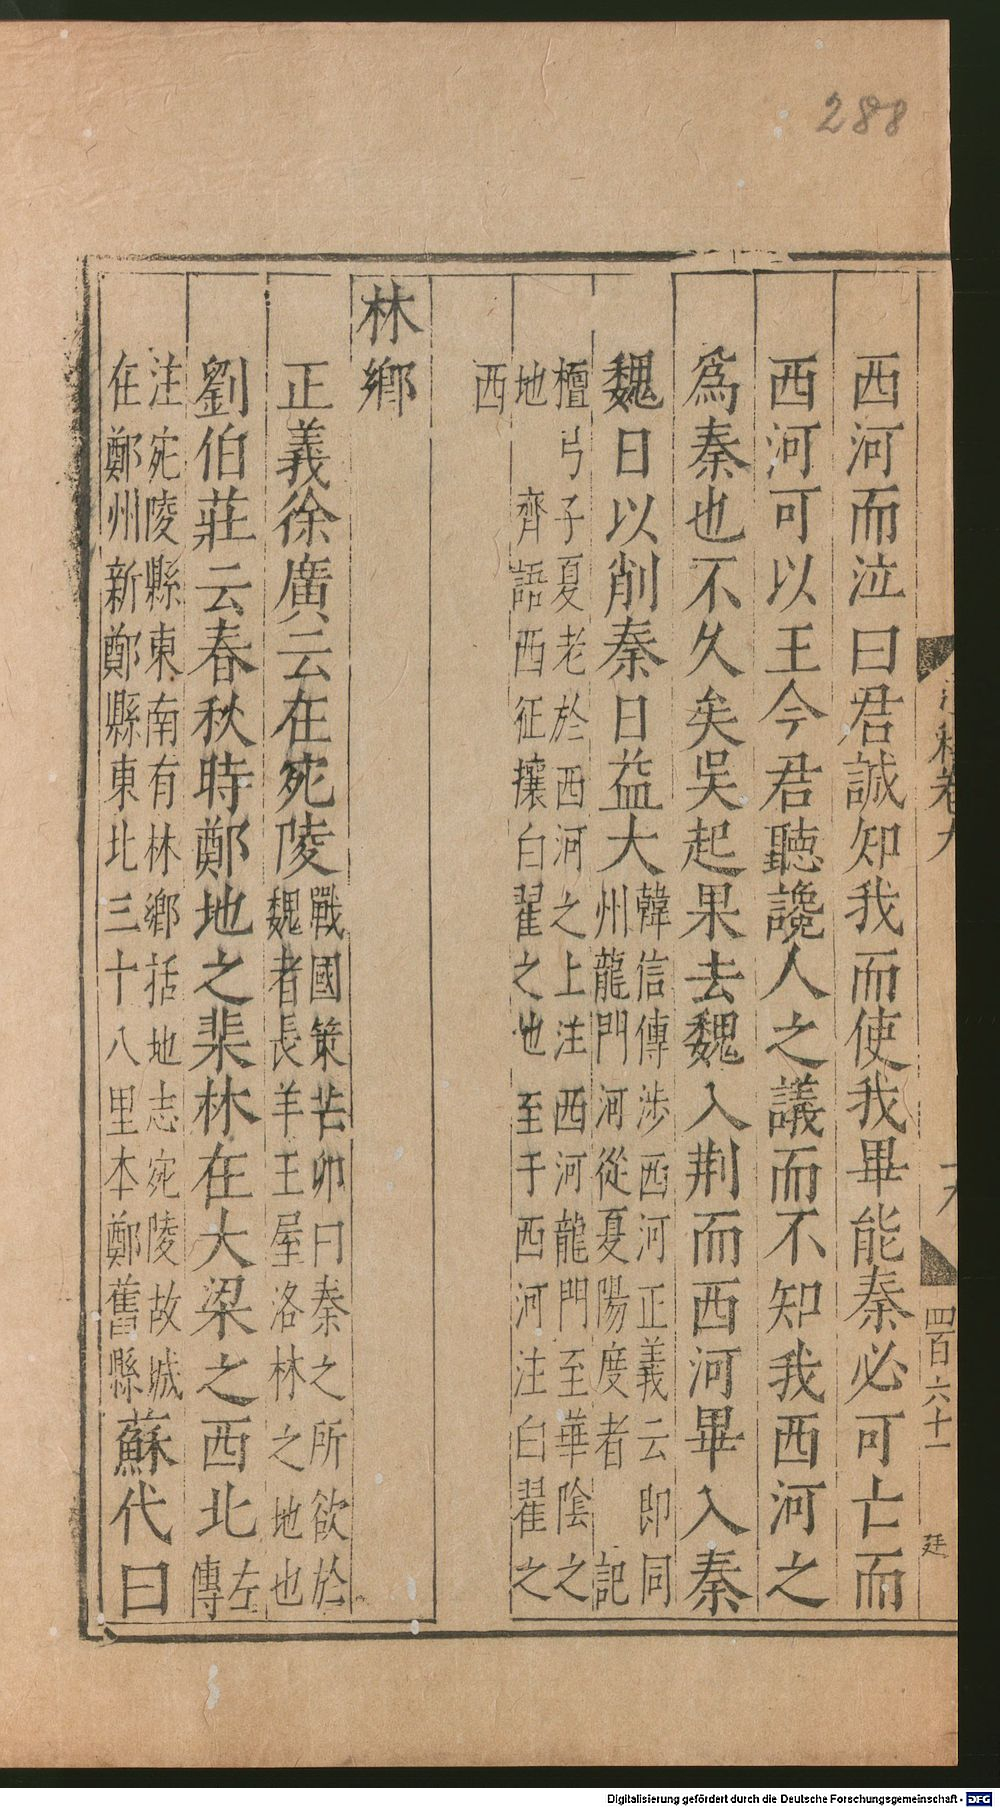 288
西河而泣曰君誠知我而使我畢能秦必可亡而
西河可以王今君聽讒人之議而不知我西河之
爲秦也不久矣吳起果去魏入荆而西河畢入秦
魏日以削秦日益大韓信傳涉西河正義云即同
州龍門河從夏陽度者 記
檀弓子夏老於西河之上注西河龍門至華陰之
地 齊語西征攘白翟之地至于西河注白翟之
西
林鄉
正義徐廣云在宛陵戰國策芒卯曰秦之所欲於
魏者長羊王屋洛林之地也
劉伯莊云春秋時鄭地之棐林在大梁之西北左
傳
注宛陵縣東南有林鄉括地志宛陵故城
在鄭州新鄭縣東北三十八里本鄭舊縣蘇代曰
卷九
四百六十一
廷
Digitalisierung gefördert durch die Deutsche Forschungsgemeinschaft - DFG